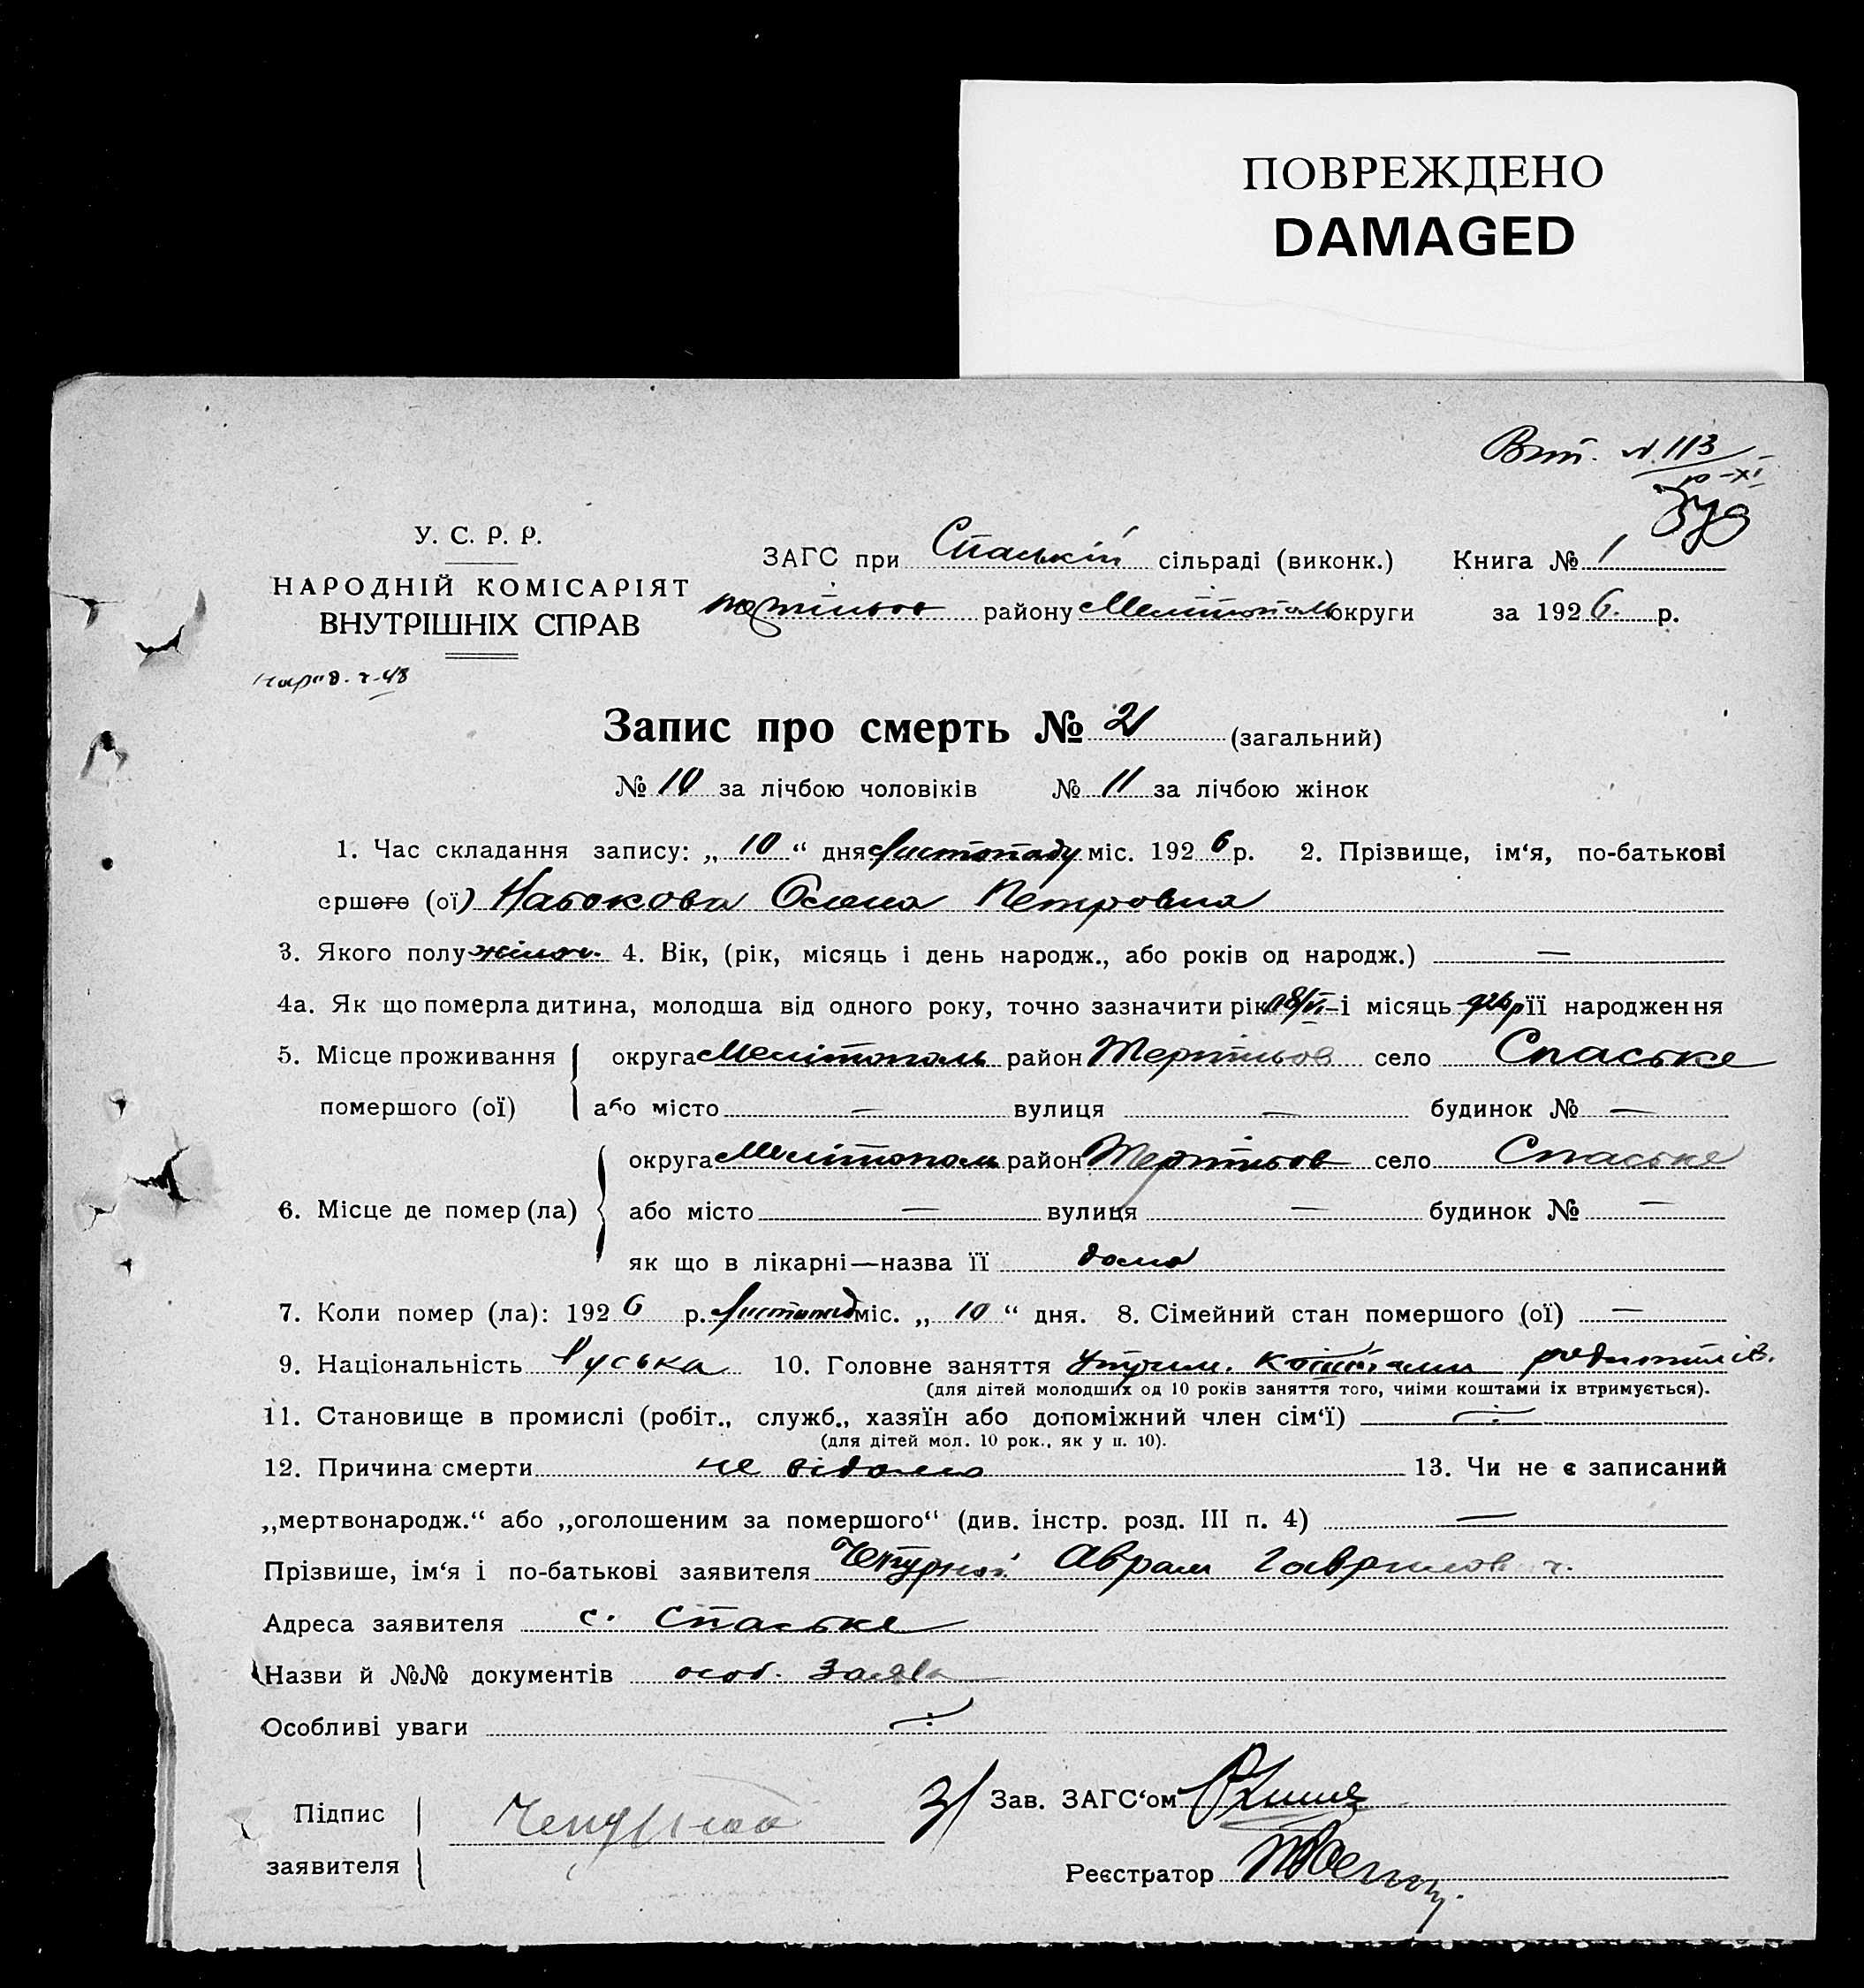 ПОВРЕЖДЕНО
DAMAGED
Вип. N. 113
10-XI
У. С. Р. Р.
НАРОДНІЙ КОМІСАРІЯТ
ВНУТРІШНІХ СПРАВ
народ. ч-48
ЗАГС при Спаській сільраді (виконк.) Книга № 1
району Мелітополь округи за 1926. р.
Запис про смерть № 21 (загальний)
№ 10 за лічбою чоловіків № 11 за лічбою жінок
1. Час складання запису: „ 10 “ дня Листопаду міс. 1926 р. 2. Прізвище, ім‘я, по-батькові
ершого (ої) Набокова Олена Петровна
3. Якого полу жіноч. 4. Вік, (рік, місяць і день народж., або років од народж.) —
4а. Як що померла дитина, молодша від одного року, точно зазначити рік і місяць її народження
5. Місце проживання округа Мелітополь район село Спаське
помершого (ої) або місто — вулиця — будинок № —
округа Мелітополь район село Спаське
6. Місце де помер (ла) або місто — вулиця — будинок № —
як що в лікарні—назва її дома
7. Коли помер (ла): 1926 р. Листопад міс. „ 10 “ дня. 8. Сімейний стан помершого (ої) —
9. Національність Руська 10. Головне заняття Утрим. коштами родителів.
(для дітей молодших од 10 років заняття того, чиїми коштами їх втримується).
11. Становище в промислі (робіт., служб., хазяїн або допоміжний член сім‘ї)
(для дітей мол. 10 рок., як у п. 10).
12. Причина смерти не відомо 13. Чи не є записаний
„мертвонародж.“ або „оголошеним за помершого“ (див. інстр. розд. III п. 4) —
Прізвише, ім‘я і по-батькові заявителя Чепурной Аврам Гаврилович.
Адреса заявителя с. Спаське
Назви й №№ документів особ. Заява
Особливі уваги
Підпис
заявителя Чепурной
З/ Зав. ЗАГС‘ом
Реєстратор